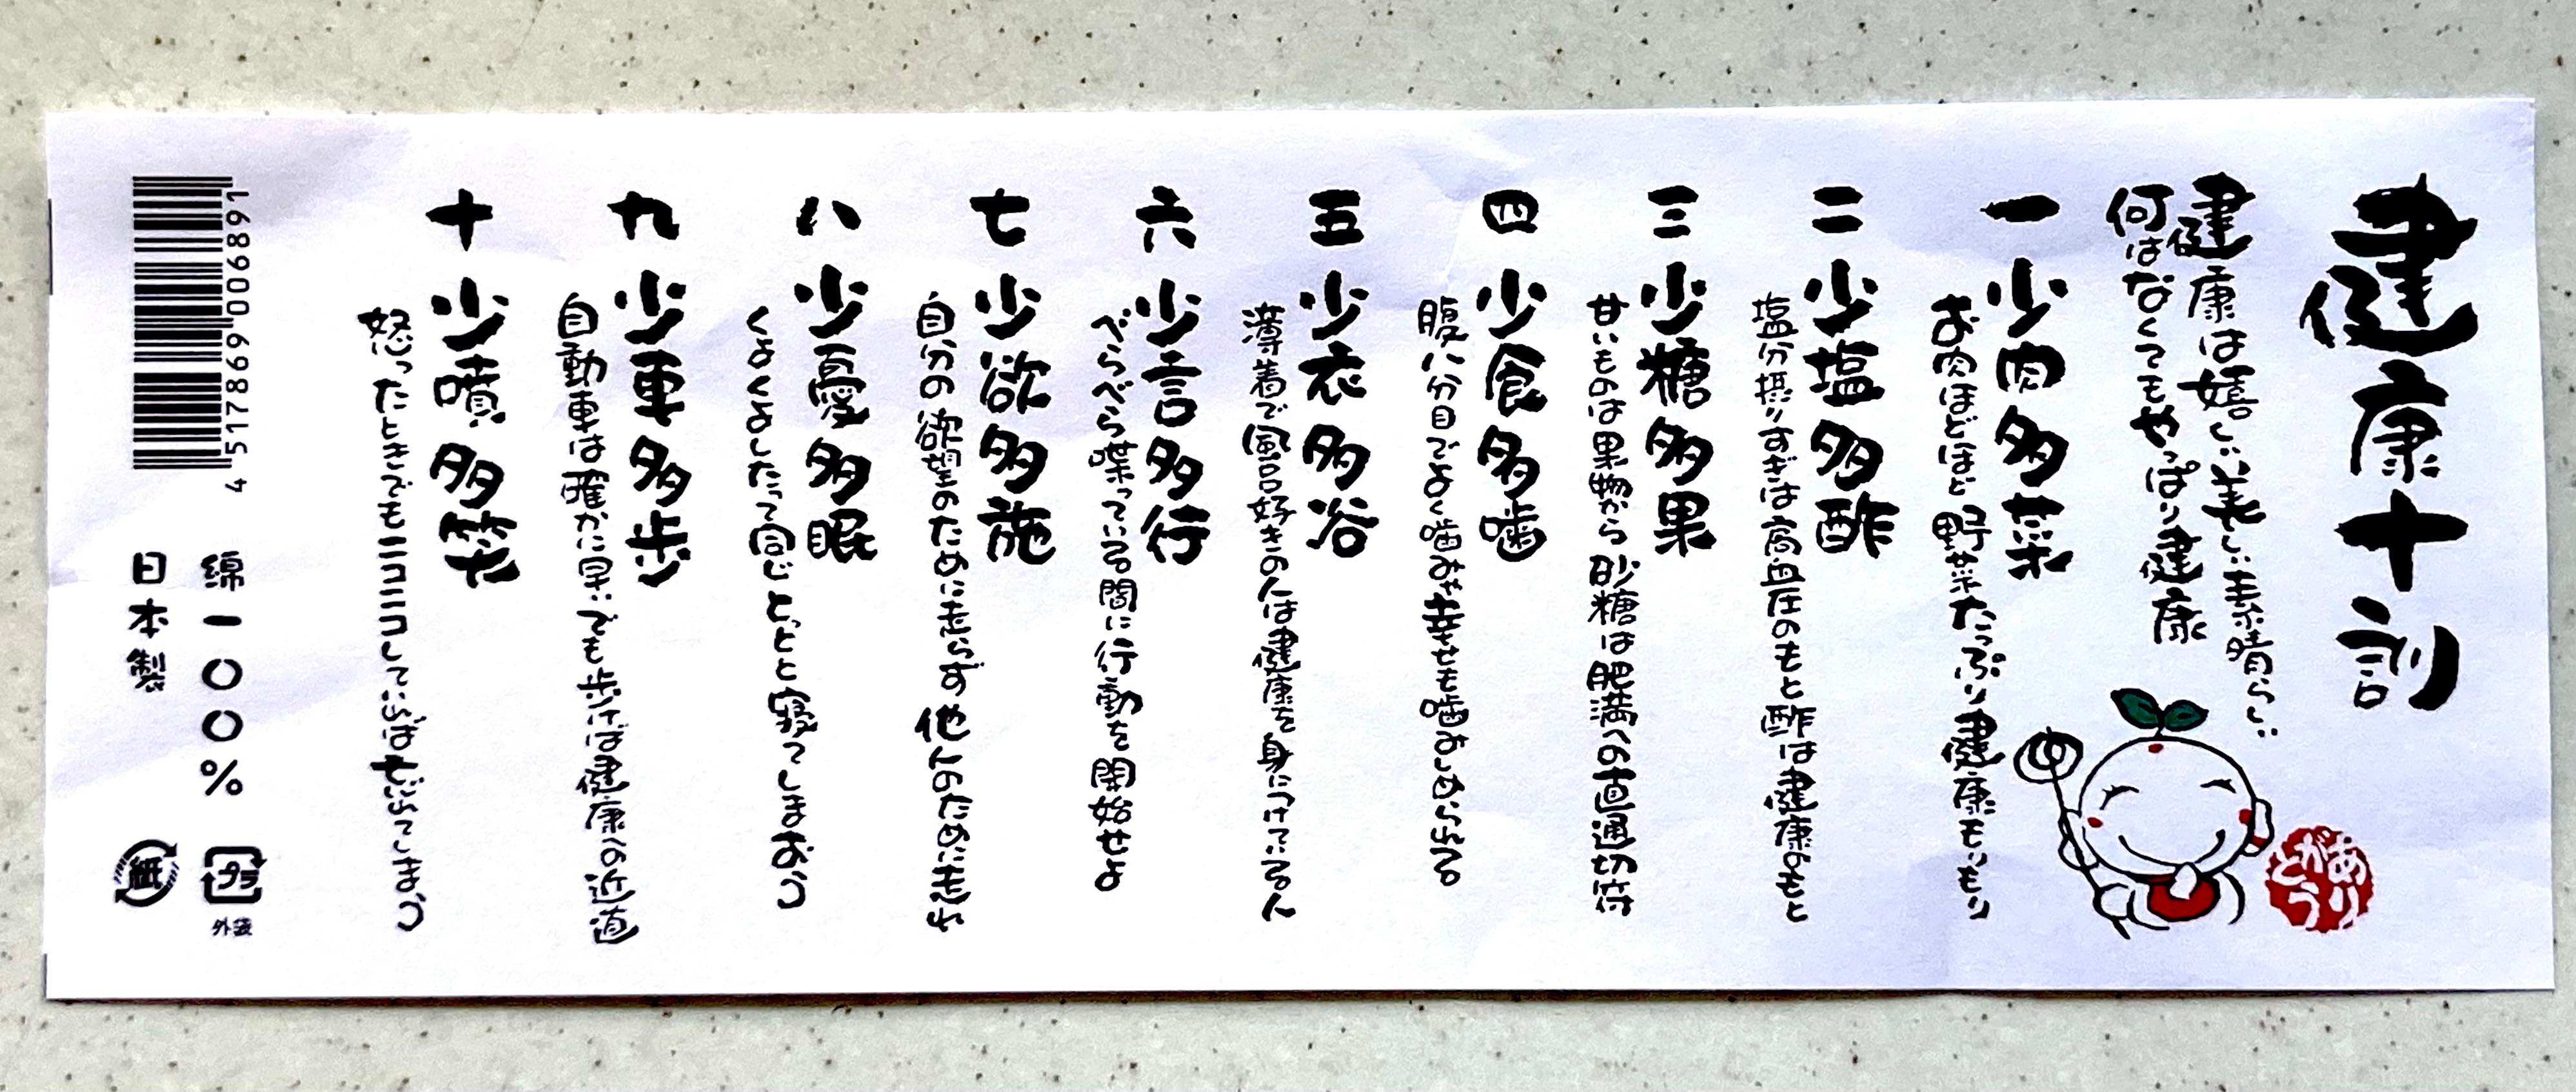 健康十訓
健康は嬉しい美しい素晴らしい
何はなくてもやっぱり健康
ありがとう
一 少肉多菜
お肉ほどほど野菜たっぷり健康もりもり
二 少塩多酢
塩分摂りすぎは高血圧のもと酢は健康のもと
三 少糖多果
甘いものは果物から砂糖は肥満への直通切符
四 少食多噛
腹八分目でよく噛みゃ幸せも噛みしめられる
五 少衣多浴
薄着で風呂好きの人は健康を身につけている人
六 少言多行
べらべら喋っている間に行動を開始せよ
七 少欲多施
自分の欲望のために走らず他人のために走れ
八 少憂多眠
くよくよしたって同じとっとと寝てしまおう
九 少車多歩
自動車は確かに早いでも歩けば健康への近道
十 少憤多笑
怒ったときでもニコニコしていれば
綿一〇〇%
日本製
プラ
外装
紙
4 517869 006891